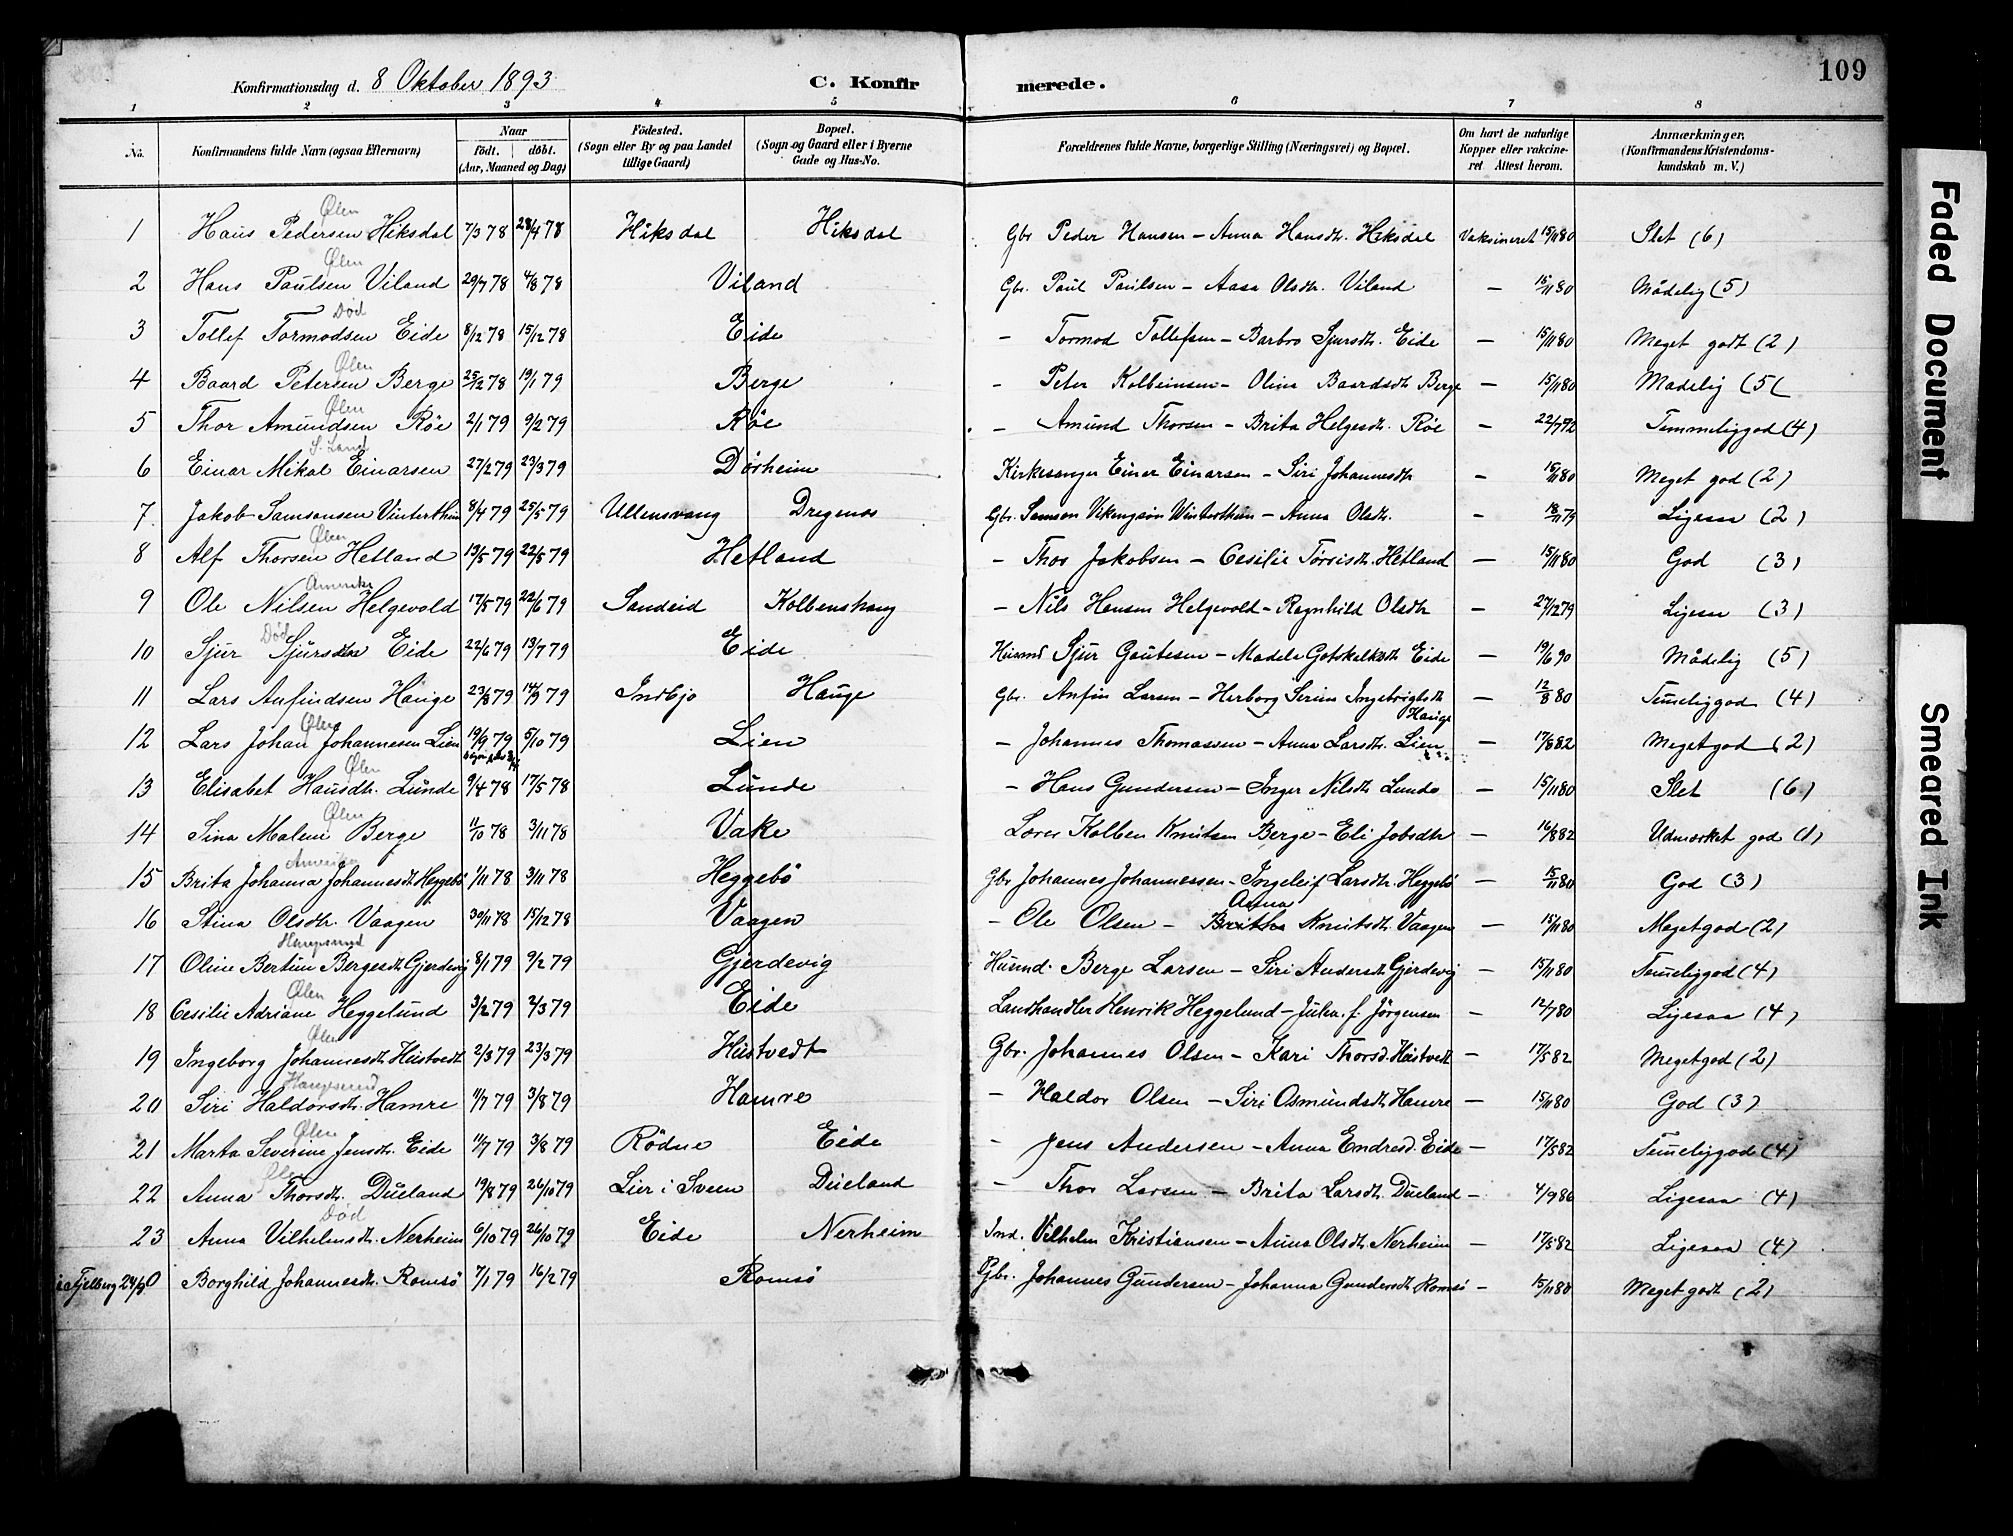 109
Konfirmationsdag d. 8 Oktober 1893
C. Konfirmerede.
1 2 3 4 5 6 7 8
No.
Konfirmandens fulde Navn (ogsaa Efternavn)
Naar
født. døbt.
(Aar, Maaned og Dag)
Fødested.
(Sogn eller By og paa Landet
tillige Gaard)
Bopæl.
(Sogn og Gaard eller i Byerne
Gade og Hus-No.
Forældrenes fulde Navne, borgerlige Stilling (Næringsvei) og Bopæl.
Om havt de naturlige
Kopper eller vakcine-
ret Attest herom.
Anmærkninger.
(Konfirmandens Kristendoms-
kundskab m. V.)
Ølen
1 Hans Pedersen Hiksdal 7/3 78 28/4 78 Hiksdal Hiksdal Gbr Peder Hansen – Anna Hansdtr. Hiksdal Vaksineret 15/11 80 Slet (6)
Ølen
2 Hans Paulsen Viland 29/7 78 4/8 78 Viland Gbr. Paul Paulsen – Aasa Olsdtr. Viland – 15/11 80 Mådelig (5)
Død
3 Tollef Tormodsen Eide 8/12 78 15/12 78 Eide – Tormod Tollefsen – Barbro Sjursdtr. Eide – 15/11 80 Meget godt (2)
Ølen
4 Baard Petersen Berge 25/12 78 19/1 79 Berge – Peter Kolbeinsen – Olina Baardsdtr Berge – 15/11 80 Madelig (5(
Ølen
5 Thor Amundsen Röe 2/1 79 9/2 79 Röe – Amund Thorsen – Brita Helgesdtr. Röe – 22/7 92 Temmeliggod (4)
S. Land
6 Einar Mikal Einarsen 27/2 79 23/3 79 Dörheim Kirkesanger Einer Einarsen – Siri Johannesdtr – 15/11 80 Meget god (2)
7. Jakob Samsonsen Vinterthun 8/4 79 25/5 79 Ullensvang Dregenes Gbr. Samson Vikingson Winterthun – Anna Olsdtr. – 18/11 79 Ligesaa (2)
Ølen
8 Alf Thorsen Hetland 13/5 79 22/5 79 Hetland – Thor Jakobsen – Cesilie Törrisdtr. Hetland – 15/11 80 God (3)
Amerika
9 Ole Nilsen Helgevold 17/5 79 22/6 79 Sandeid Kolbenshaug – Nils Hansen Helgevold – Ragnhild Olsdtr – 27/12 79 Ligesaa (3)
Død
10 Sjur Sjursen Eide 22/6 79 13/7 79 Eide Husmd Sjur Gautesen – Madele Gotskalksdtr Eide – 19/6 90 Mådelig (5)
11 Lars Anfindsen Hauge 23/8 79 14/9 79 Indbjo Hauge Gbr. Anfin Larsen – Herborg Serina Ingebrigtsdtr Hauge – 12/8 80 Temeliggod (4)
Ølen
12 Lars Johan Johannesen Lien 19/9 79 5/10 79 Lien – Johannes Thomassen – Anna Larsdtr. Lien – 17/8 82 Megetgod (2)
Ølen
13 Elisabet Hansdtr. Lunde 9/4 78 17/5 78 Lunde – Hans Gundersen – Inger Nilsdtr Lunde – 15/11 80 Slet (6)
Ølen
14 Sina Malene Berge 11/10 78 3/11 78 Vake Lærer Kolben Knutsen Berge – Eli Jobsdtr – 16/8 82 Udmærket god (1)
Amerika
15 Brita Johanna Johannesdtr Heggebö 1/11 78 3/11 78 Heggebö Gbr Johannes Johannessen – Ingeleif Larsdtr. Heggebö – 15/11 80 God (3)
16 Stina Olsdtr. Vaagen 30/11 78 15/12 78 Vaagen – Ole Olsen – Britha Anna Knutsdtr. Vaagen – 15/11 80 Megetgod (2)
Haugesund
17 Oline Bertine Bergesdtr Gjerdevig 8/1 79 9/2 79 Gjerdevig Husmd. Berge Larsen – Siri Andersdtr Gjerdevig – 15/11 80 Temeliggod (4)
Ølen
18 Cesilie Adriane Heggelund 3/2 79 2/3 79 Eide Landhandler Henrik Heggelund – Julea. f. Jörgensen – 12/7 80 Ligesaa (4)
Ølen
19 Ingeborg Johannesdtr Hustvedt 2/3 79 23/3 79 Hustvedt Gbr. Johannes Olsen – Kari Thorsd. Hustvedt – 17/5 82 Megetgod (2)
Haugesund
20 Siri Haldorsdtr. Hamre 11/7 79 3/8 79 Hamre – Haldor Olsen – Siri Osmundsdtr Hamre – 15/11 80 God (3)
Ølen
21 Marta Severine Jensdtr. Eide 11/7 79 3/8 79 Rödne Eide – Jens Andersen – Anna Endresd. Eide – 17/5 82 Temeliggod (4)
Ølen
22 Anna Thorsdtr. Dueland 19/8 79 26/10 79 Lier i Sveen Dueland – Thor Larsen – Brita Larsdtr. Dueland – 4/9 86 Ligesaa (4)
Død
23 Anna Vilhelmsdtr. Nerheim 6/10 79 26/10 79 Eide Nerheim Ind. Vilhelm Kristiansen – Anna Olsdtr Nerheim – 17/5 82 Ligesaa (4)
i Fjelberg 24/9 0 Borghild Johannesdtr. Romsö 7/1 79 16/2 79 Romsö Gbr. Johannes Gundersen – Johanna Gundersdtr Romsö – 15/11 80 Meget godt (2)
Faded Document
Smeared Ink